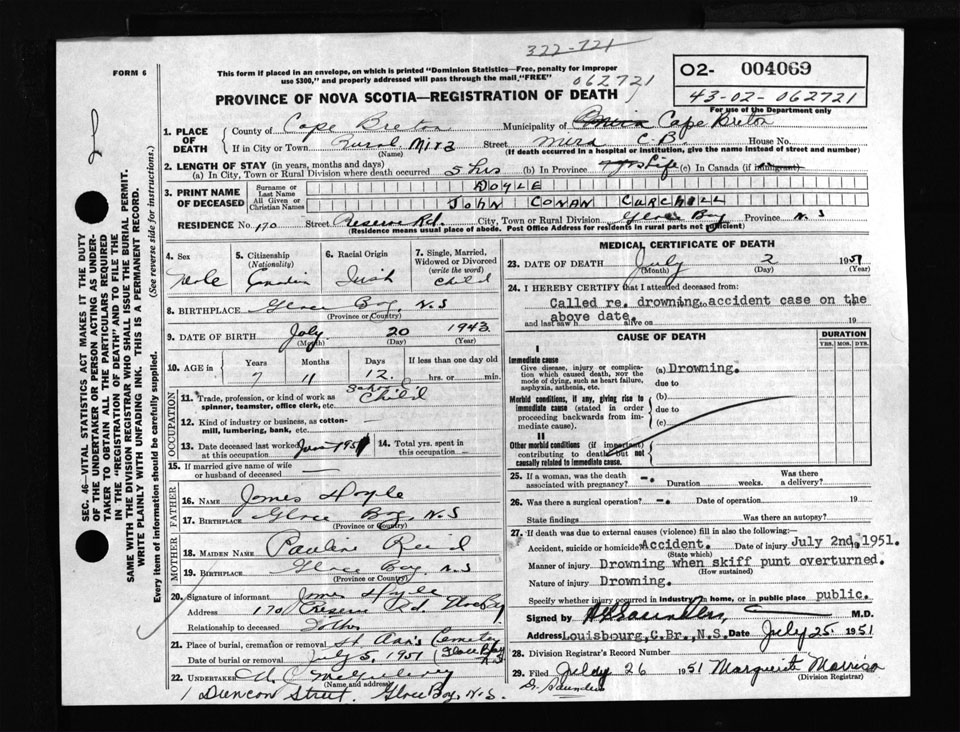 FORM 6
322-721
This form if placed in an envelope, on which is printed "Dominion Statistics—Free, penalty for improper
use $300," and properly addressed will pass through the mail, "FREE"
062721
O2- 004069
43-02-062721
For use of the Department only
PROVINCE OF NOVA SCOTIA—REGISTRATION OF DEATH
1. PLACE OF DEATH
County of Cape Breton Municipality of Cape Breton
If in City or Town Rural Mira Street Mira C.B. House No.
(Name) (If death occurred in a hospital or institution, give the name instead of street and number)
2. LENGTH OF STAY (in years, months and days)
(a) In City, Town or Rural Division where death occurred 5 hrs (b) In Province Life (c) In Canada (if immigrant)
3. PRINT NAME OF DECEASED
Surname or Last Name DOYLE
All Given or Christian Names JOHN CONAN CURCHILL
RESIDENCE No. 170 Street Reserve Rd. City, Town or Rural Division Glace Bay Province N.S
(Residence means usual place of abode. Post Office Address for residents in rural parts not sufficient)
4. Sex Male
5. Citizenship (Nationality) Canadian
6. Racial Origin Irish
7. Single, Married, Widowed or Divorced (write the word) Child
8. BIRTHPLACE Glace Bay, N.S
(Province or Country)
9. DATE OF BIRTH July 20 1943
(Month) (Day) (Year)
10. AGE in Years 7 Months 11 Days 12. If less than one day old hrs. or min.
11. Trade, profession, or kind of work as spinner, teamster, office clerk, etc. School Child
12. Kind of industry or business, as cotton-mill, lumbering, bank, etc.
13. Date deceased last worked at this occupation June 1951
14. Total yrs. spent in this occupation
15. If married give name of wife or husband of deceased
OCCUPATION
FATHER
16. NAME James Doyle
17. BIRTHPLACE Glace Bay, N.S
(Province or Country)
MOTHER
18. MAIDEN NAME Pauline
19. BIRTHPLACE Glace Bay, N.S
(Province or Country)
20. Signature of informant James Doyle
Address 170 Reserve Rd, Glace Bay
Relationship to deceased Father
21. Place of burial, cremation or removal St Ann's Cemetery
Date of burial or removal July 5, 1951 Glace Bay N.S
22. UNDERTAKER
(Name and address)
1 Duncan Street, Glace Bay, N.S.
MEDICAL CERTIFICATE OF DEATH
23. DATE OF DEATH July 2 1951
(Month) (Day) (Year)
24. I HEREBY CERTIFY that I attended deceased from:
Called re. drowning accident case on the
and last saw h alive on 19
above date.
CAUSE OF DEATH
DURATION
YRS. MOS. DYS.
I
Immediate cause
Give disease, injury or complication which caused death, NOT the mode of dying, such as heart failure, asphyxia, asthenia, etc.
(a) Drowning.
due to
Morbid conditions, if any, giving rise to immediate cause (stated in order proceeding backwards from immediate cause).
(b)
due to
(c)
II
Other morbid conditions (if important) contributing to death but not causally related to immediate cause.
25. If a woman, was the death associated with pregnancy? -. Duration weeks. Was there a delivery?
26. Was there a surgical operation? -. Date of operation 19
State findings Was there an autopsy?
27. If death was due to external causes (violence) fill in also the following:—
Accident, suicide or homicide? Accident. Date of injury July 2nd, 1951.
(State which)
Manner of injury Drowning when skiff punt overturned.
(How sustained)
Nature of injury Drowning.
Specify whether injury occurred in industry, in home, or in public place public.
Signed by Saunders, M.D.
Address Louisbourg, C.Br., N.S. Date July 25 1951
28. Division Registrar's Record Number
29. Filed July 26 1951 Marguerite Morrison
(Division Registrar)
Dr. Saunders
SEC. 46—VITAL STATISTICS ACT MAKES IT THE DUTY
OF THE UNDERTAKER OR PERSON ACTING AS UNDERTAKER TO OBTAIN ALL THE PARTICULARS REQUIRED
IN THE "REGISTRATION OF DEATH" AND TO FILE THE
SAME WITH THE DIVISION REGISTRAR WHO SHALL ISSUE THE BURIAL PERMIT.
WRITE PLAINLY WITH UNFADING INK. THIS IS A PERMANENT RECORD.
Every item of information should be carefully supplied. (See reverse side for instructions.)